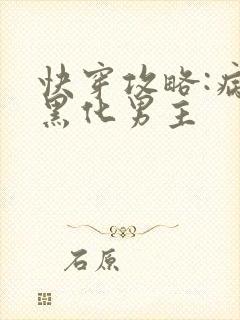 快穿攻略:病
黑化男主
石原